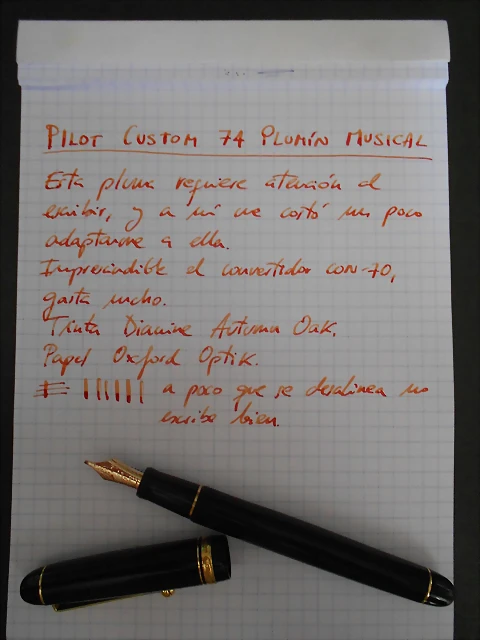 PILOT CUSTOM 74 PLUMÍN MUSICAL
Esta pluma requiere atención al
escribir, y a mí me costó un poco
adaptarme a ella.
Imprescindible el convertidor CON-70,
gasta mucho.
Tinta Diamine Autumn Oak.
Papel Oxford Optik.
a poco que se desalinea no
escribe bien.